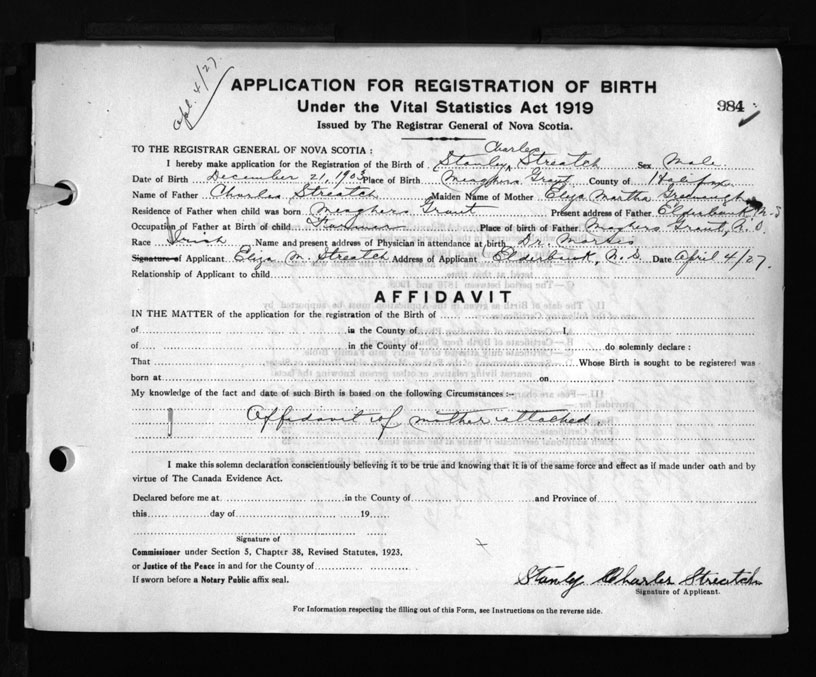 Apl. 4/27
APPLICATION FOR REGISTRATION OF BIRTH
Under the Vital Statistics Act 1919
984
Issued by The Registrar General of Nova Scotia.
TO THE REGISTRAR GENERAL OF NOVA SCOTIA :
Charles
I hereby make application for the Registration of the Birth of Stanley Streatch Sex Male
Date of Birth December 21, 1903 Place of Birth Meaghers Grant County of Halifax
Name of Father Charles Streatch Maiden Name of Mother Eliza Martha
Residence of Father when child was born Meaghers Grant Present address of Father Elderbank N.S
Occupation of Father at Birth of child Farmer Place of birth of Father Meaghers Grant, N.S.
Race Irish Name and present address of Physician in attendance at birth Dr.
Signature of Applicant Eliza M. Streatch Address of Applicant Elderbank, N.S. Date April 4/27.
Relationship of Applicant to child
AFFIDAVIT
IN THE MATTER of the application for the registration of the Birth of
of in the County of I,
of in the County of do solemnly declare :
That Whose Birth is sought to be registered was
born at on
My knowledge of the fact and date of such Birth is based on the following Circumstances :-
Affidavit of mother attached.
I make this solemn declaration conscientiously believing it to be true and knowing that it is of the same force and effect as if made under oath and by
virtue of The Canada Evidence Act.
Declared before me at in the County of and Province of
this day of 19
Signature of
Commissioner under Section 5, Chapter 38, Revised Statutes, 1923,
or Justice of the Peace in and for the County of
If sworn before a Notary Public affix seal.
Stanly Charles Streatch
Signature of Applicant.
For Information respecting the filling out of this Form, see Instructions on the reverse side.